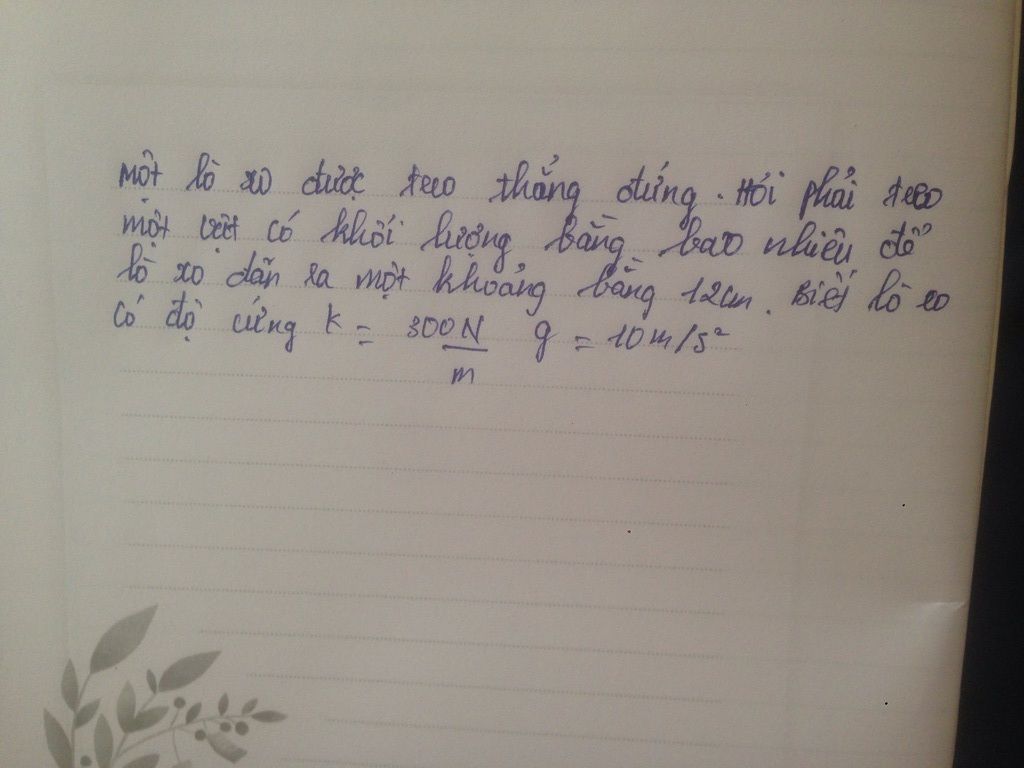 một lò xo được treo thẳng đứng. Hỏi phải treo
một vật có khối lượng bằng bao nhiêu để
lò xo dãn ra một khoảng bằng 12cm. Biết lò xo
có độ cứng k = 300N/m g = 10m/s²